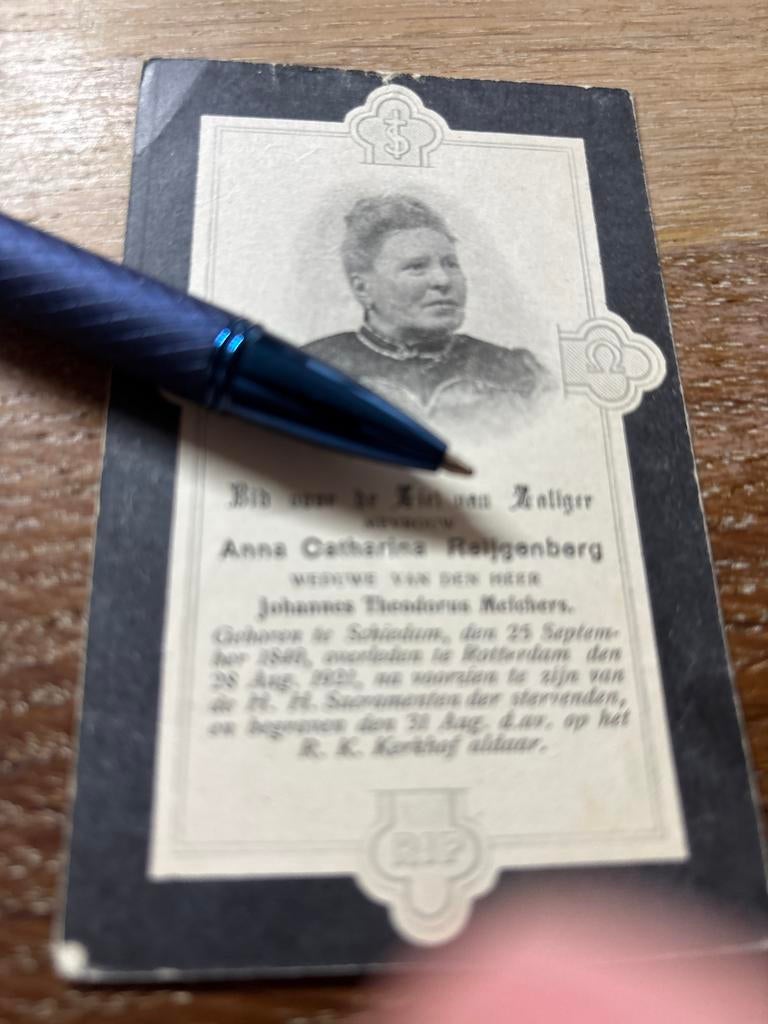 Ω
Bid voor de Ziel van Zaliger
MEVROUW
Anna Catharina Reijgenberg
WEDUWE VAN DEN HEER
Johannes Theodorus Melchers.
Geboren te Schiedam, den 25 Septem-
ber 1840, overleden te Rotterdam den
28 Aug. 1921, na voorzien te zijn van
de H. H. Sacramenten der stervenden,
en begraven den 31 Aug. d.av. op het
R. K. Kerkhof aldaar.
RIP